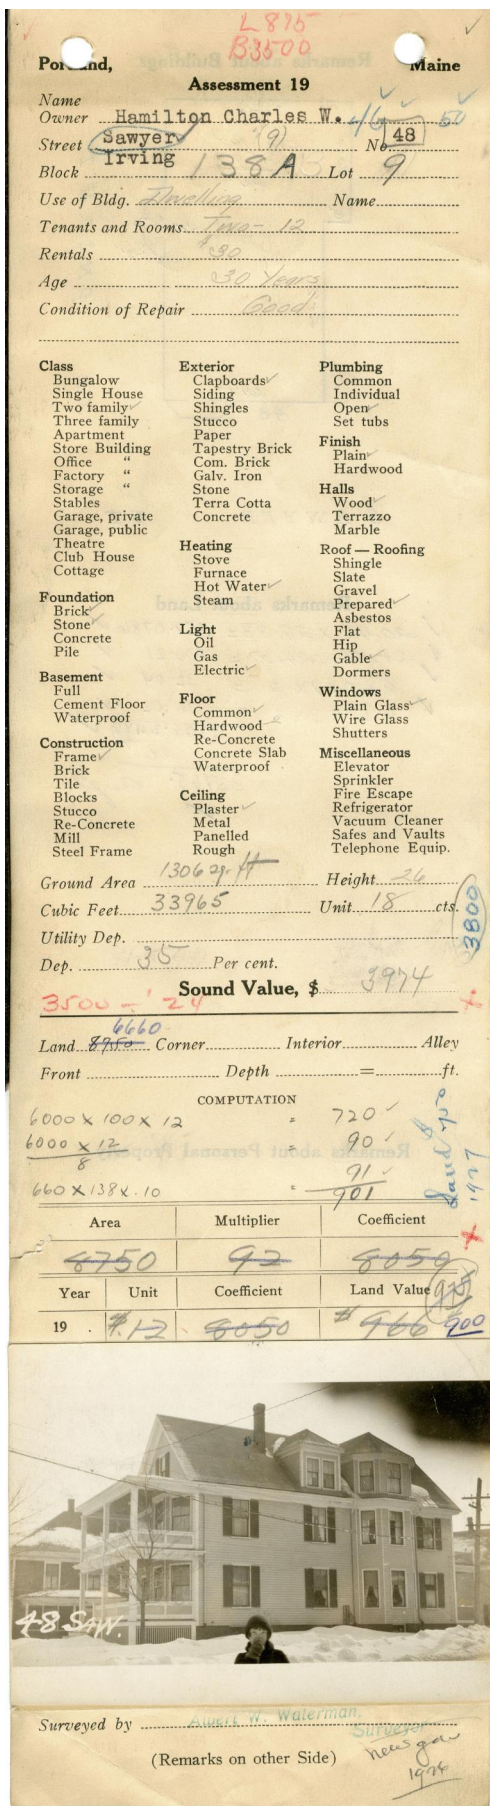 L 875
B3500
Portland, Maine
Assessment 19
Name
Owner Hamilton Charles W. 46 50
Street Sawyer (9) No 48
Irving
Block 138 A Lot 9
Use of Bldg. Dwelling Name
Tenants and Rooms Two - 12
Rentals $30
Age 30 Years
Condition of Repair Good
Class
Bungalow
Single House
Two family ✓
Three family
Apartment
Store Building
Office "
Factory "
Storage "
Stables
Garage, private
Garage, public
Theatre
Club House
Cottage
Foundation
Brick ✓
Stone ✓
Concrete
Pile
Basement
Full
Cement Floor
Waterproof
Construction
Frame ✓
Brick
Tile
Blocks
Stucco
Re-Concrete
Mill
Steel Frame
Exterior
Clapboards ✓
Siding
Shingles
Stucco
Paper
Tapestry Brick
Com. Brick
Galv. Iron
Stone
Terra Cotta
Concrete
Heating
Stove
Furnace
Hot Water ✓
Steam
Light
Oil
Gas
Electric ✓
Floor
Common ✓
Hardwood ✓
Re-Concrete
Concrete Slab
Waterproof
Ceiling
Plaster ✓
Metal
Panelled
Rough
Plumbing
Common
Individual
Open ✓
Set tubs
Finish
Plain ✓
Hardwood
Halls
Wood ✓
Terrazzo
Marble
Roof — Roofing
Shingle
Slate
Gravel
Prepared ✓
Asbestos
Flat
Hip
Gable ✓
Dormers
Windows
Plain Glass ✓
Wire Glass
Shutters
Miscellaneous
Elevator
Sprinkler
Fire Escape
Refrigerator
Vacuum Cleaner
Safes and Vaults
Telephone Equip.
Ground Area 1306 sq. ft Height 26
Cubic Feet 33965 Unit 18 cts.
3800
Utility Dep.
Dep. 35 Per cent.
Sound Value, $ 3974
3500 - '24
6660
Land 8750 Corner Interior Alley
Front Depth = ft.
COMPUTATION
6000 x 100 x 12 = 720 ✓
6000 x 12 = 90 ✓
8
91 ✓
660 x 138 x .10 = 901
1927
Area Multiplier Coefficient
8750 92 8050
Year Unit Coefficient Land Value 975
19 . $.12 8050 $ 966 900
48 SAW.
Surveyed by Albert W. Waterman.
Surveyor
(Remarks on other Side)
1926